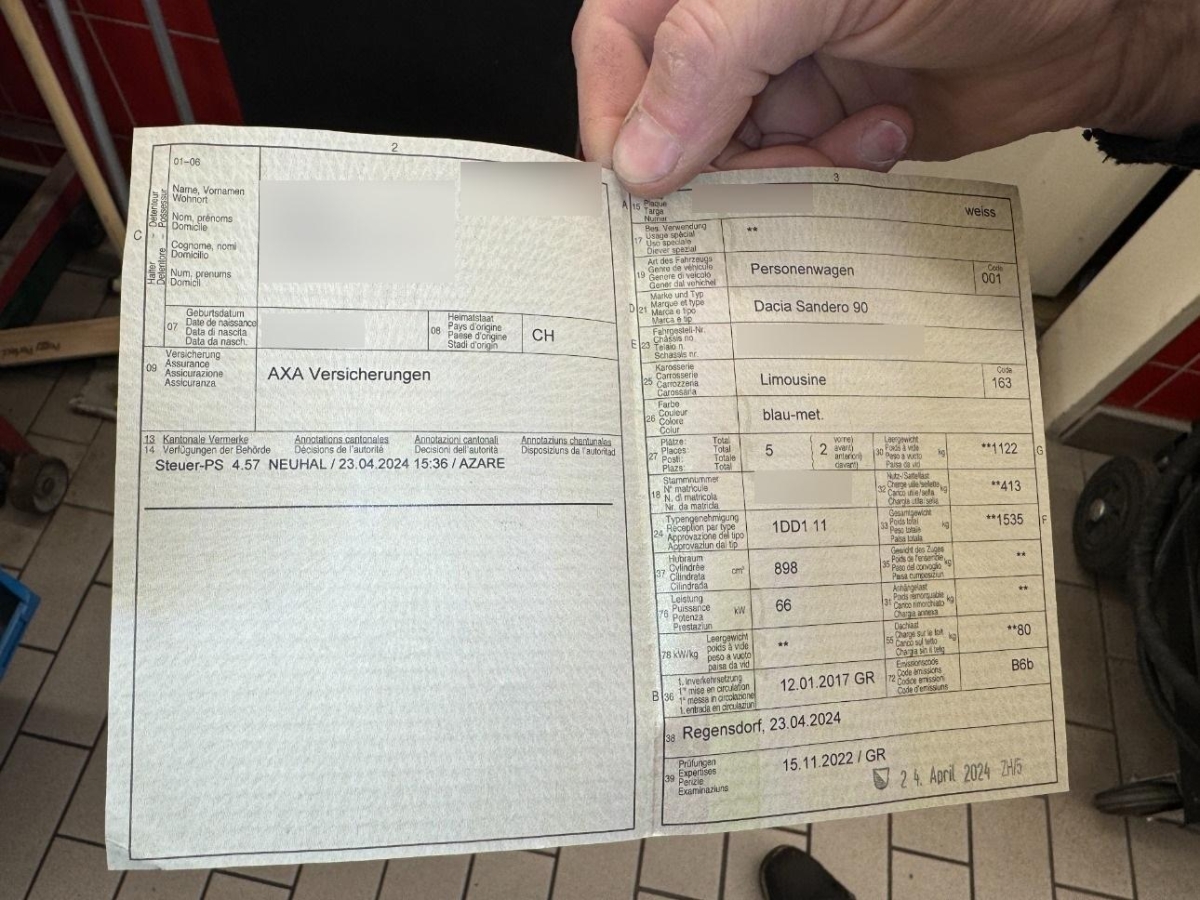 2
01–06
Name, Vornamen
Wohnort
Nom, prénoms
Domicile
Cognome, nomi
Domicilio
Num, prenums
Domicil
C
Halter Détenteur
Detentore Possessur
07
Geburtsdatum
Date de naissance
Data di nascita
Data da nasch.
08
Heimatstaat
Pays d'origine
Paese d'origine
Stadi d'origin
CH
09
Versicherung
Assurance
Assicurazione
Assicuranza
AXA Versicherungen
13 Kantonale Vermerke Annotations cantonales Annotazioni cantonali Annotaziuns chantunalas
14 Verfügungen der Behörde Décisions de l'autorité Decisioni dell'autorità Disposiziuns da l'autoritad
Steuer-PS 4.57 NEUHAL / 23.04.2024 15:36 / AZARE
3
A 15
Plaque
Targa
Numer
weiss
17
Bes. Verwendung
Usage spécial
Uso speciale
Diever spezial
**
19
Art des Fahrzeugs
Genre de véhicule
Genere di veicolo
Gener dal vehichel
Personenwagen
Code
001
D 21
Marke und Typ
Marque et type
Marca e tipo
Marca e tip
Dacia Sandero 90
E 23
Fahrgestell-Nr.
Châssis no
Telaio n.
Schassis nr.
25
Karosserie
Carrosserie
Carrozzeria
Carossaria
Limousine
Code
163
26
Farbe
Couleur
Colore
Colur
blau-met.
27
Plätze: Total
Places: Total
Posti: Totale
Plazs: Total
5
2
vorne)
avant)
anteriori)
davant)
30
Leergewicht
Poids à vide
Peso a vuoto
Paisa da vid
kg
**1122
G
18
Stammnummer
N° matricule
N. di matricola
Nr. da matricla
32
Nutz-/Sattellast
Charge utile/sellette
Carico utile/sella
Chargia utila/sella
kg
**413
24
Typengenehmigung
Réception par type
Approvazione del tipo
Approvaziun dal tip
1DD1 11
33
Gesamtgewicht
Poids total
Peso totale
Paisa totala
kg
**1535
F
37
Hubraum
Cylindrée
Cilindrata
Cilindrada
cm³
898
35
Gewicht des Zuges
Poids de l'ensemble
Peso del convoglio
Paisa cumposiziun
kg
**
76
Leistung
Puissance
Potenza
Prestaziun
kW
66
31
Anhängelast
Poids remorquable
Carico rimorchiato
Chargia annexa
kg
**
78 kW/kg
Leergewicht
poids à vide
peso a vuoto
paisa da vid
**
55
Dachlast
Charge sur le toit
Carico sul tetto
Chargia sin il tetg
kg
**80
B 36
1. Inverkehrsetzung
1re mise en circulation
1a messa in circolazione
1. entrada en circulaziun
12.01.2017 GR
72
Emissionscode
Code émissions
Codice emissioni
Code d'emissiuns
B6b
38 Regensdorf, 23.04.2024
39
Prüfungen
Expertises
Perizie
Examinaziuns
15.11.2022 / GR
24. April 2024 ZH/5